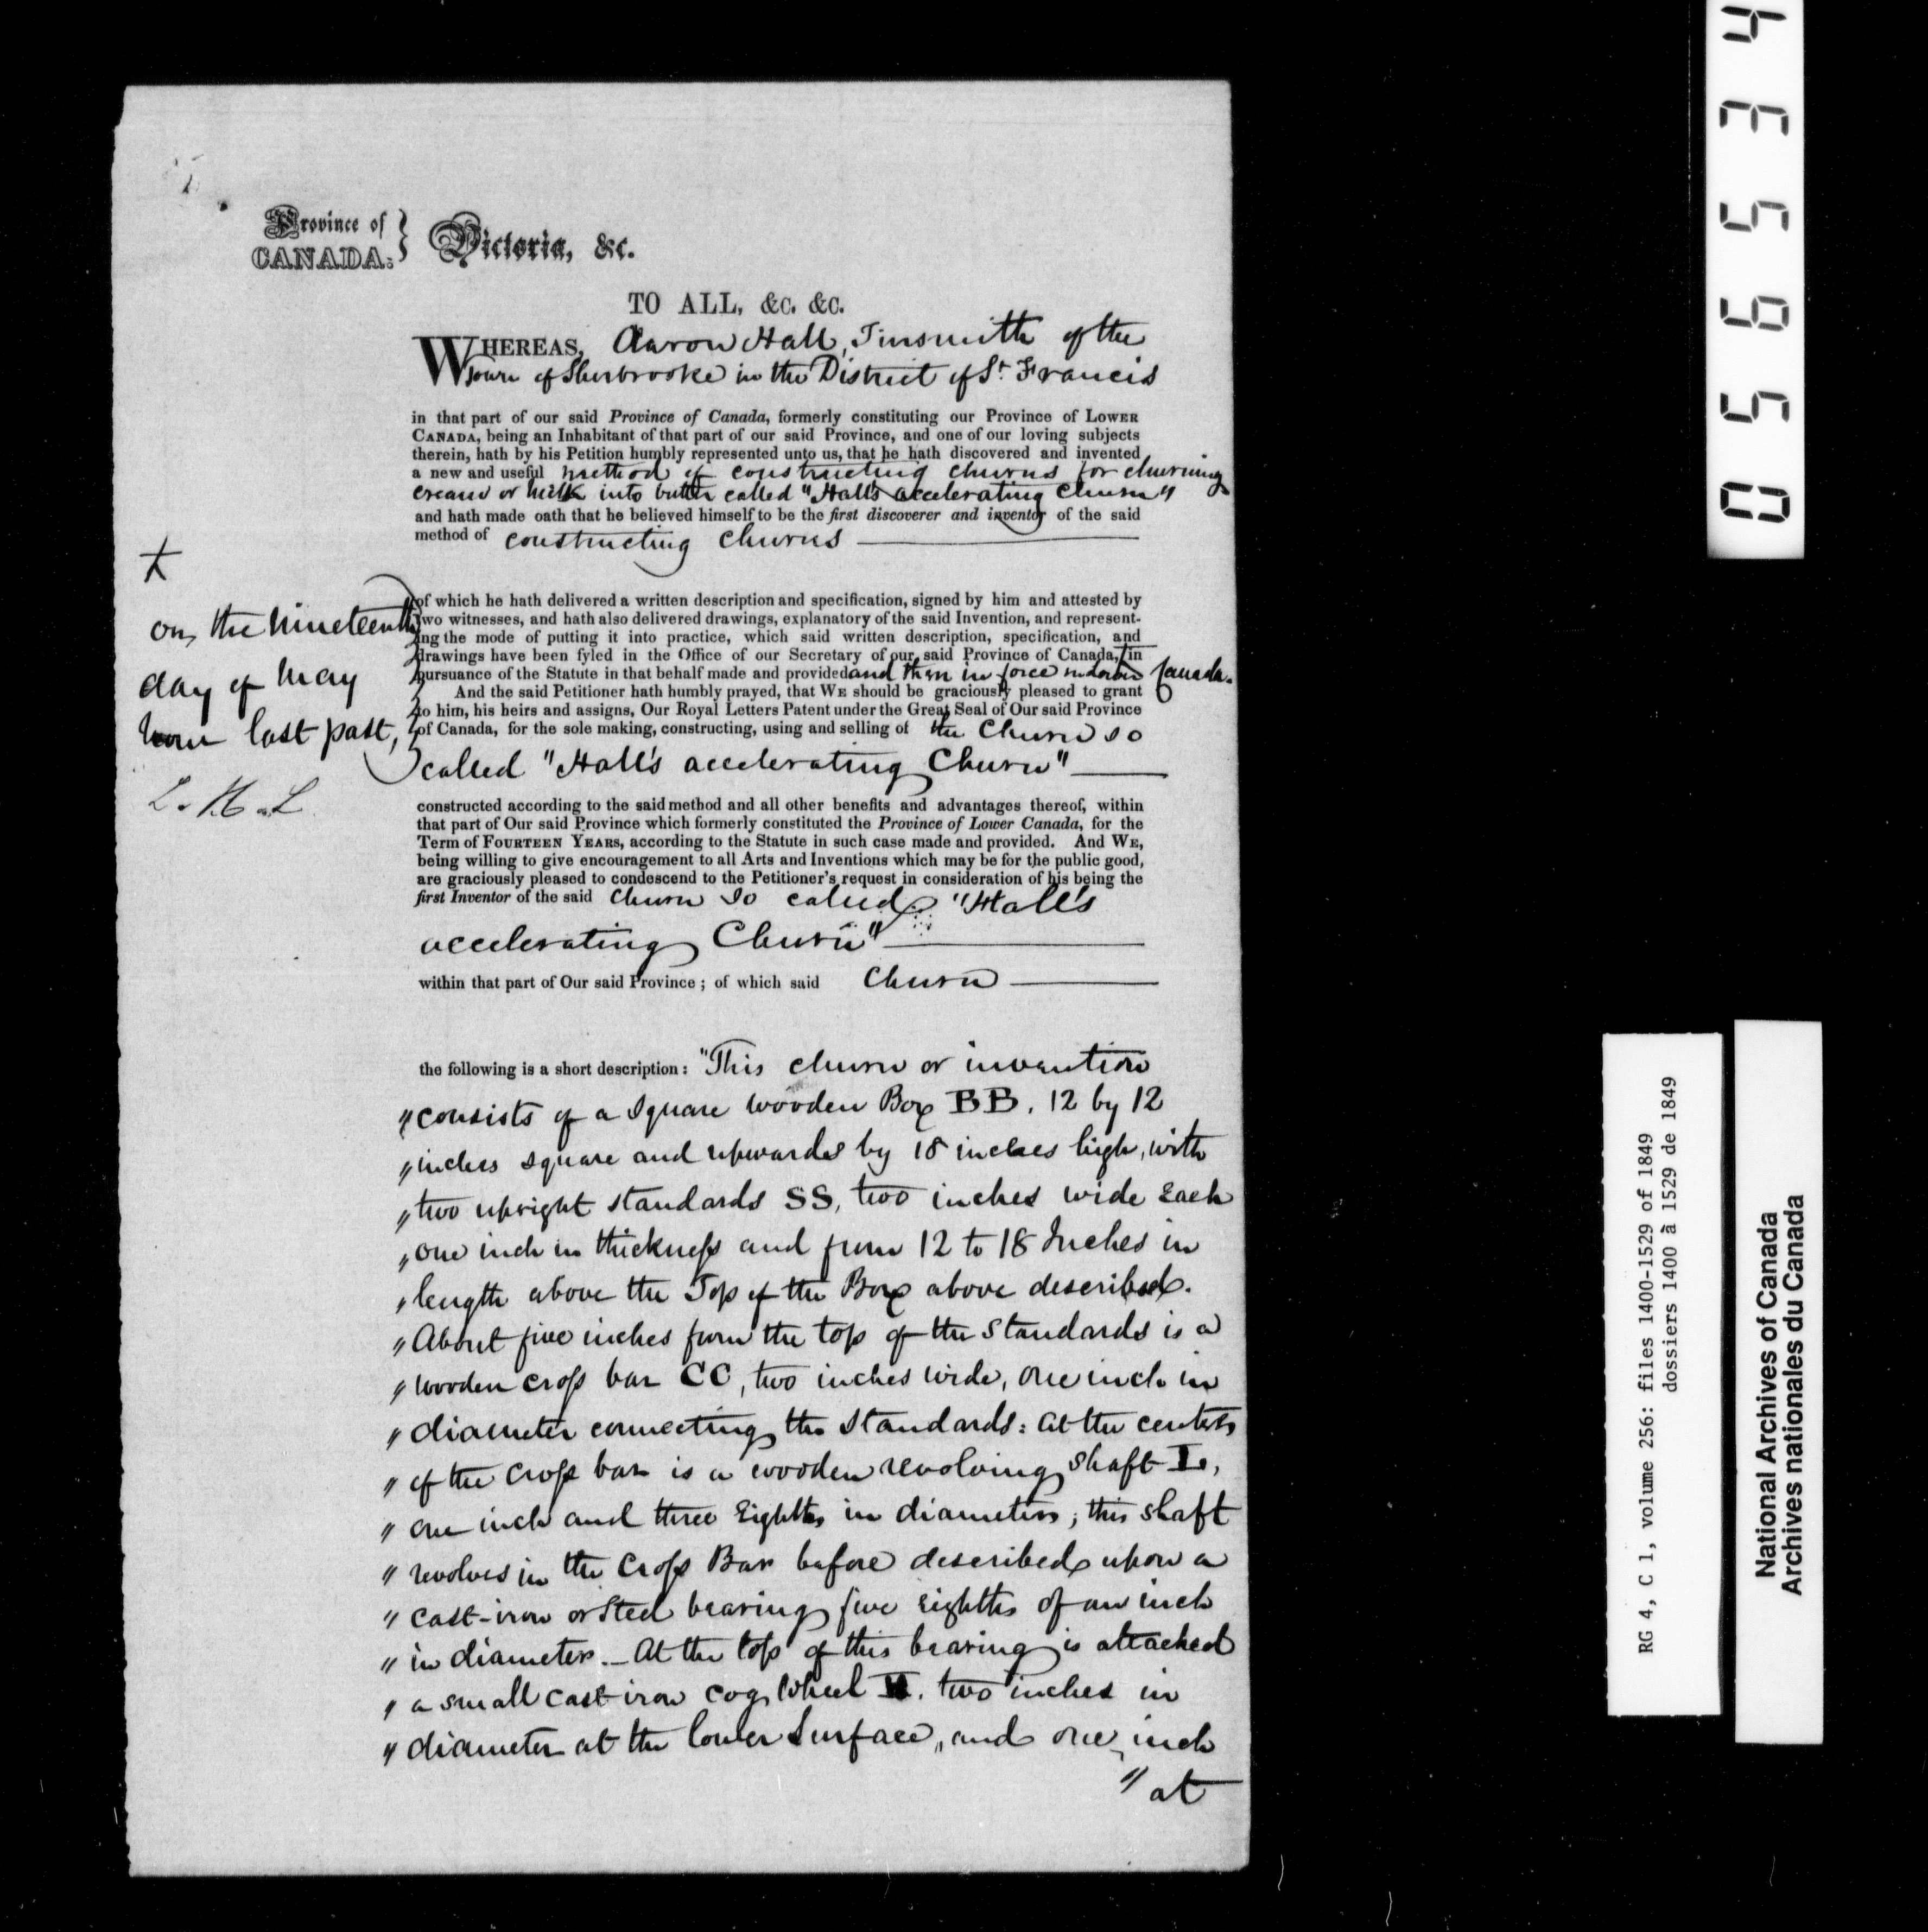 Province of
CANADA.
Victoria, &c.
TO ALL, &c. &c.
WHEREAS, Aaron Hall, Tinsmith of the
Town of Sherbrooke in the District of St. Francis
in that part of our said Province of Canada, formerly constituting our Province of LOWER
CANADA, being an Inhabitant of that part of our said Province, and one of our loving subjects
therein, hath by his Petition humbly represented unto us, that he hath discovered and invented
a new and useful method of constructing churns for churning
cream or milk into butter called "Hall's accelerating Churn"
and hath made oath that he believed himself to be the first discoverer and inventor of the said
method of constructing Churns
of which he hath delivered a written description and specification, signed by him and attested by
two witnesses, and hath also delivered drawings, explanatory of the said Invention, and represent-
ing the mode of putting it into practice, which said written description, specification, and
drawings have been fyled in the Office of our Secretary of our said Province of Canada, in
pursuance of the Statute in that behalf made and provided and then in force in Lower Canada.
And the said Petitioner hath humbly prayed, that WE should be graciously pleased to grant
to him, his heirs and assigns, Our Royal Letters Patent under the Great Seal of Our said Province
of Canada, for the sole making, constructing, using and selling of the Churn so
called "Hall's accelerating Churn"
on the nineteenth
day of May
now last past,
L. H. L
constructed according to the said method and all other benefits and advantages thereof, within
that part of Our said Province which formerly constituted the Province of Lower Canada, for the
Term of FOURTEEN YEARS, according to the Statute in such case made and provided. And WE,
being willing to give encouragement to all Arts and Inventions which may be for the public good,
are graciously pleased to condescend to the Petitioner's request in consideration of his being the
first Inventor of the said Churn so called "Hall's
accelerating Churn"
within that part of Our said Province; of which said Churn
the following is a short description: "This churn or invention
"consists of a square wooden Box BB. 12 by 12
"inches square and upwards by 18 inches high, with
"two upright standards SS, two inches wide Each
"one inch in thickness and from 12 to 18 Inches in
"length above the Top of the Box above described.
"About five inches from the top of the Standards is a
"wooden cross bar CC, two inches wide, one inch in
"diameter connecting the Standards: At the center
"of the cross bar is a wooden revolving shaft I,
"one inch and three Eighths in diameter; this shaft
"revolves in the Cross Bar before described upon a
"cast-iron or Steel bearing five eighths of an inch
"in diameter. — At the top of this bearing is attached
"a small cast iron cog Wheel two inches in
"diameter at the lower Surface, and one inch
"at
0 5 6 5 3 4
RG 4, C 1, volume 256: files 1400-1529 of 1849
dossiers 1400 à 1529 de 1849
National Archives of Canada
Archives nationales du Canada